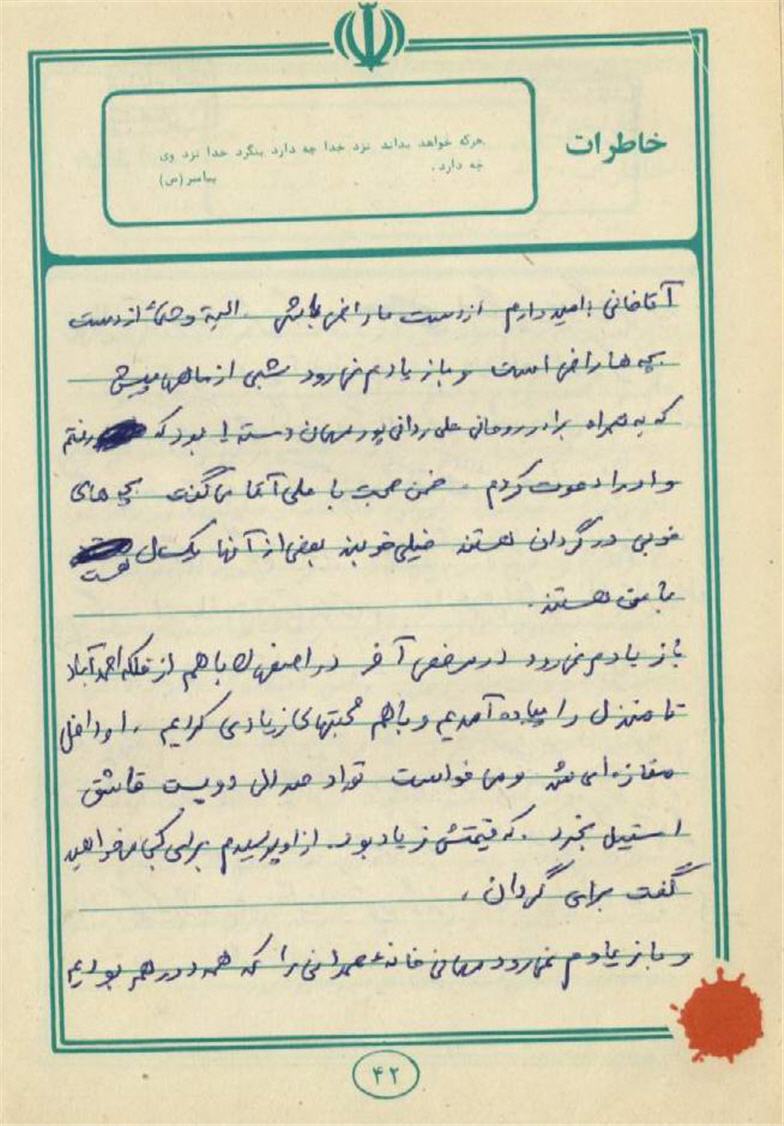 خاطرات
هرکه خواهد بداند نزد خدا چه دارد بنگرد خدا نزد وی
چه دارد.
پیامبر (ص)
آقاخانی امیددارم از دست ما راضی باشی. البته وحتماً از دست
بچه ها راضی است و باز یادم نمی رود شبی از ماههای پیش
که به همراه برادر روحانی علی ردانی پور میهمان دسته ا بود که رفتم
و او را دعوت کردم. ضمن صحبت با علی آقا می گفت بچه های
خوبی در گردان هستند خیلی خوبند بعضی از آنها یکسال هست
با من هستند.
باز یادم نمی رود در مرخصی آخر در اصفهان باهم از فلکه احمدآباد
تا منزل را پیاده آمدیم و باهم صحبتهای زیادی کردیم. او داخل
مغازه ای شد و می خواست تعداد صد الی دویست قاشق
استیل بخرد. که قیمتش زیاد بود. از او پرسیدم برای کجا می خواهید
گفت برای گردان.
و باز یادم نمی رود میهمانی خانه همدانی را که همه دور هم بودیم
۴۲